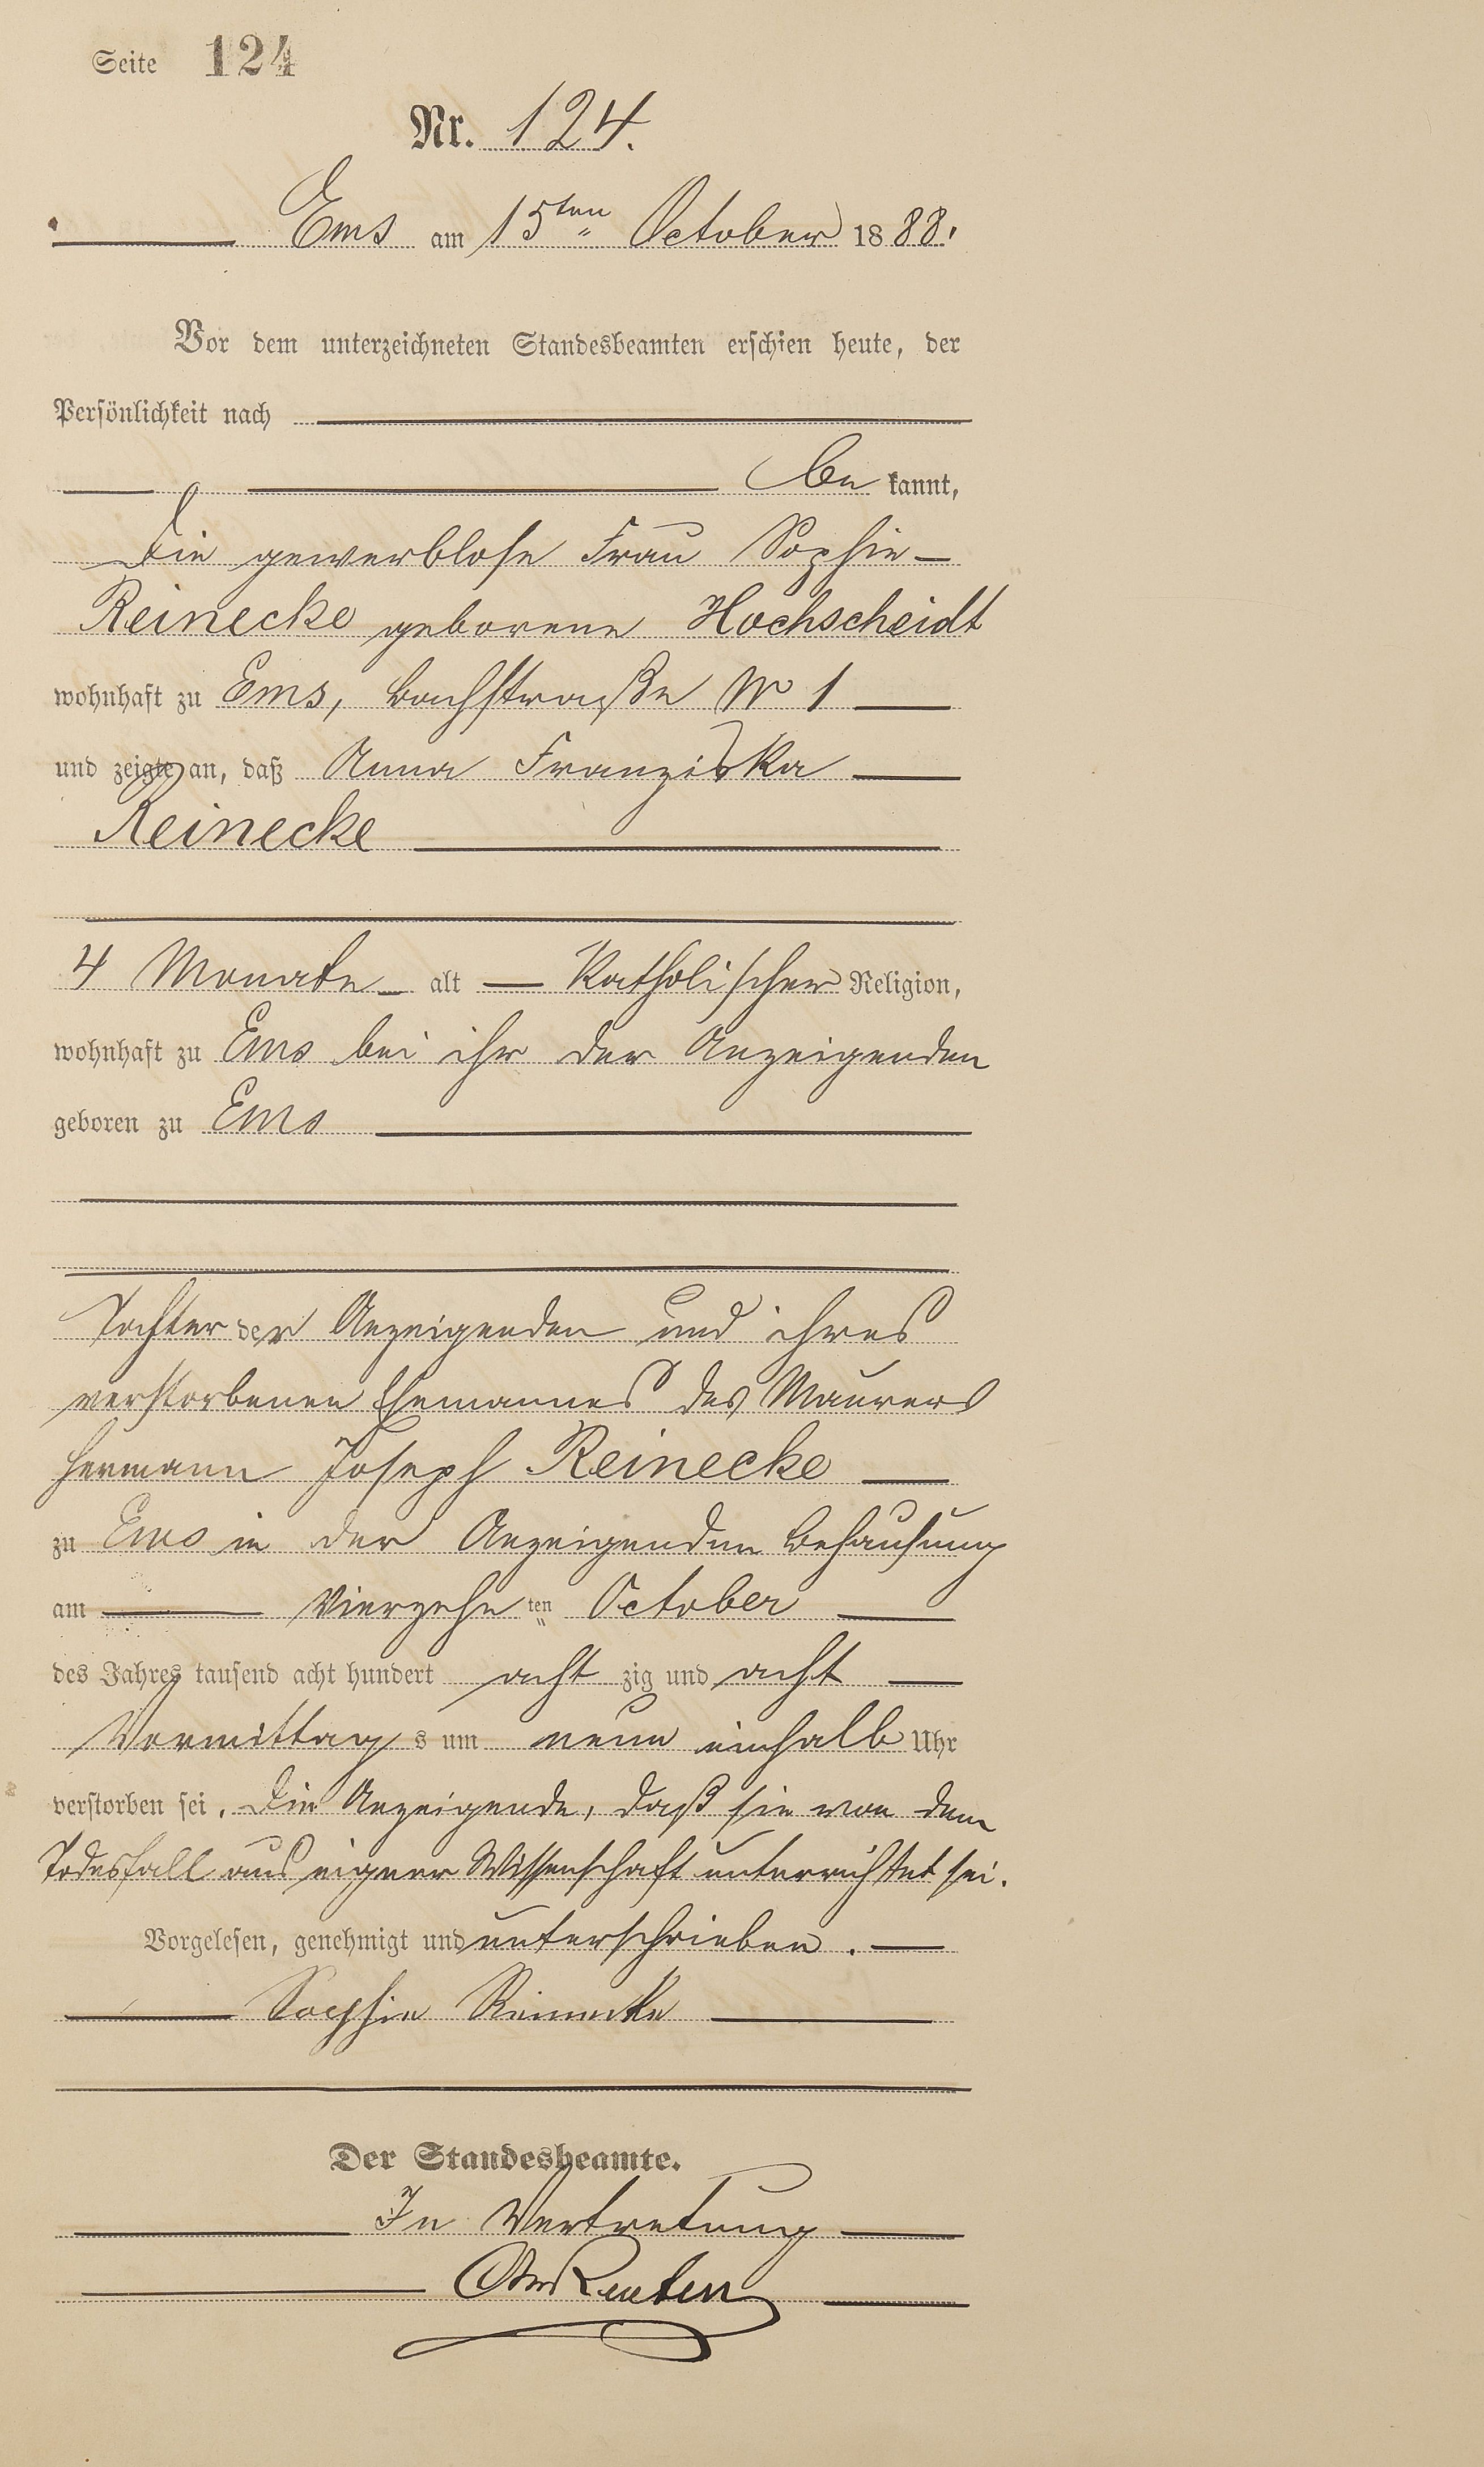 Seite 124
Nr. 124.
Ems am 15ten October 1888.
Vor dem unterzeichneten Standesbeamten erschien heute, der
Persönlichkeit nach
be kannt,
die gewerblose Frau Sophie
Reinecke geborene Hochscheidt
wohnhaft zu Ems, Bachstraße No 1
und zeigte an, daß Anna Franziska
Reinecke
4 Monate alt Katholischer Religion,
wohnhaft zu Ems bei ihr der Anzeigenden
geboren zu Ems
Tochter der Anzeigenden und ihres
verstorbenen Ehemannes des Maurers
Hermann Joseph Reinecke
zu Ems in der Anzeigenden Behausung
am Vierzehn ten October
des Jahres tausend acht hundert acht zig und acht
Vormittag s um neun einhalb Uhr
verstorben sei. Die Anzeigende, daß sie von dem
Todesfall aus eigner Wissenschaft unterrichtet sei.
Vorgelesen, genehmigt und unterschrieben.
Sophie Reinecke
Der Standesbeamte.
In Vertretung